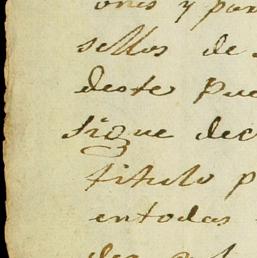 ones y par
sellos de
deste pue
sigue dec
titulo p
entodas